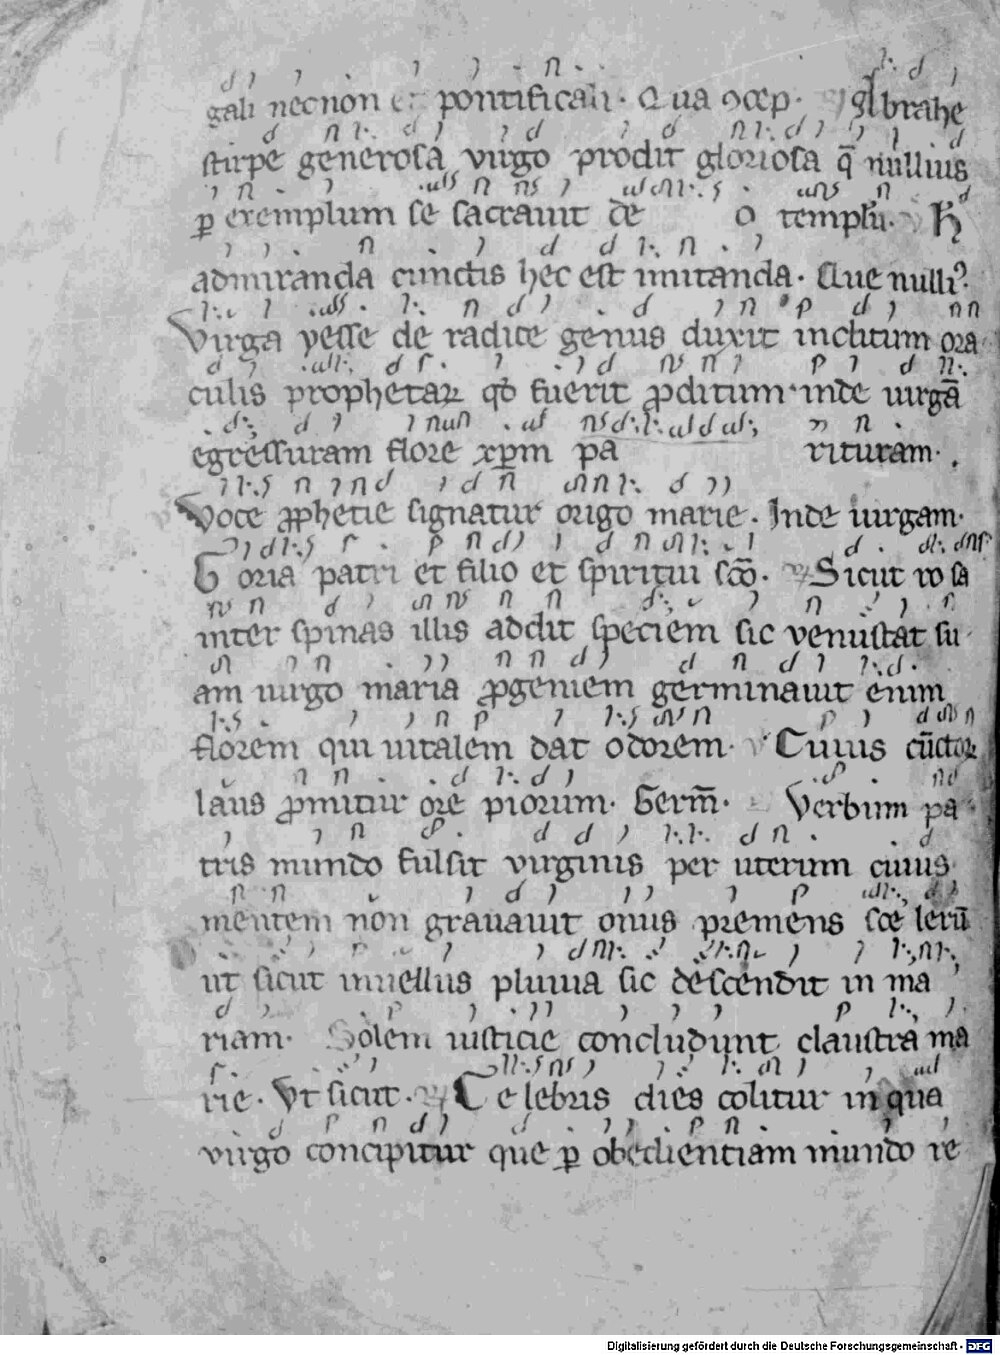 gali necnon et pontificali. Qua ꝯcep. gl̃ brahe
stirpe generosa virgo prodit gloriosa q̄ nullius
ꝑ exemplum se sacrauit de o templū.
admiranda cunctis hec est imitanda. Que nulliꝰ.
Virga yesse de radice genus duxit inclitum ora
culis prophetaꝝ qd̓ fuerit ꝓditum. inde uirgā
egressuram flore xpm pa rituram.
Voce ꝓphetie signatur origo marie. Inde uirgam.
G oria patri et filio et spiritui sco̅. Sicut ro sa
inter spinas illis addit speciem sic venustat su
am uirgo maria ꝓgeniem germinauit enim
florem qui uitalem dat odorem. Cuius cū̅ctoꝝ
laus ꝓmitur ore piorum. Germ̅. Verbum pa
tris mundo fulsit virginis per uterum cuius
mentem non grauauit onus premens sce lerū
ut sicut in uellus pluuia sic descendit in ma
riam. Solem iusticie concludunt claustra ma
rie. Ut sicut. Ce lebris dies colitur in qua
virgo concipitur que ꝑ obedientiam mundo re
Digitalisierung gefördert durch die Deutsche Forschungsgemeinschaft - DFG